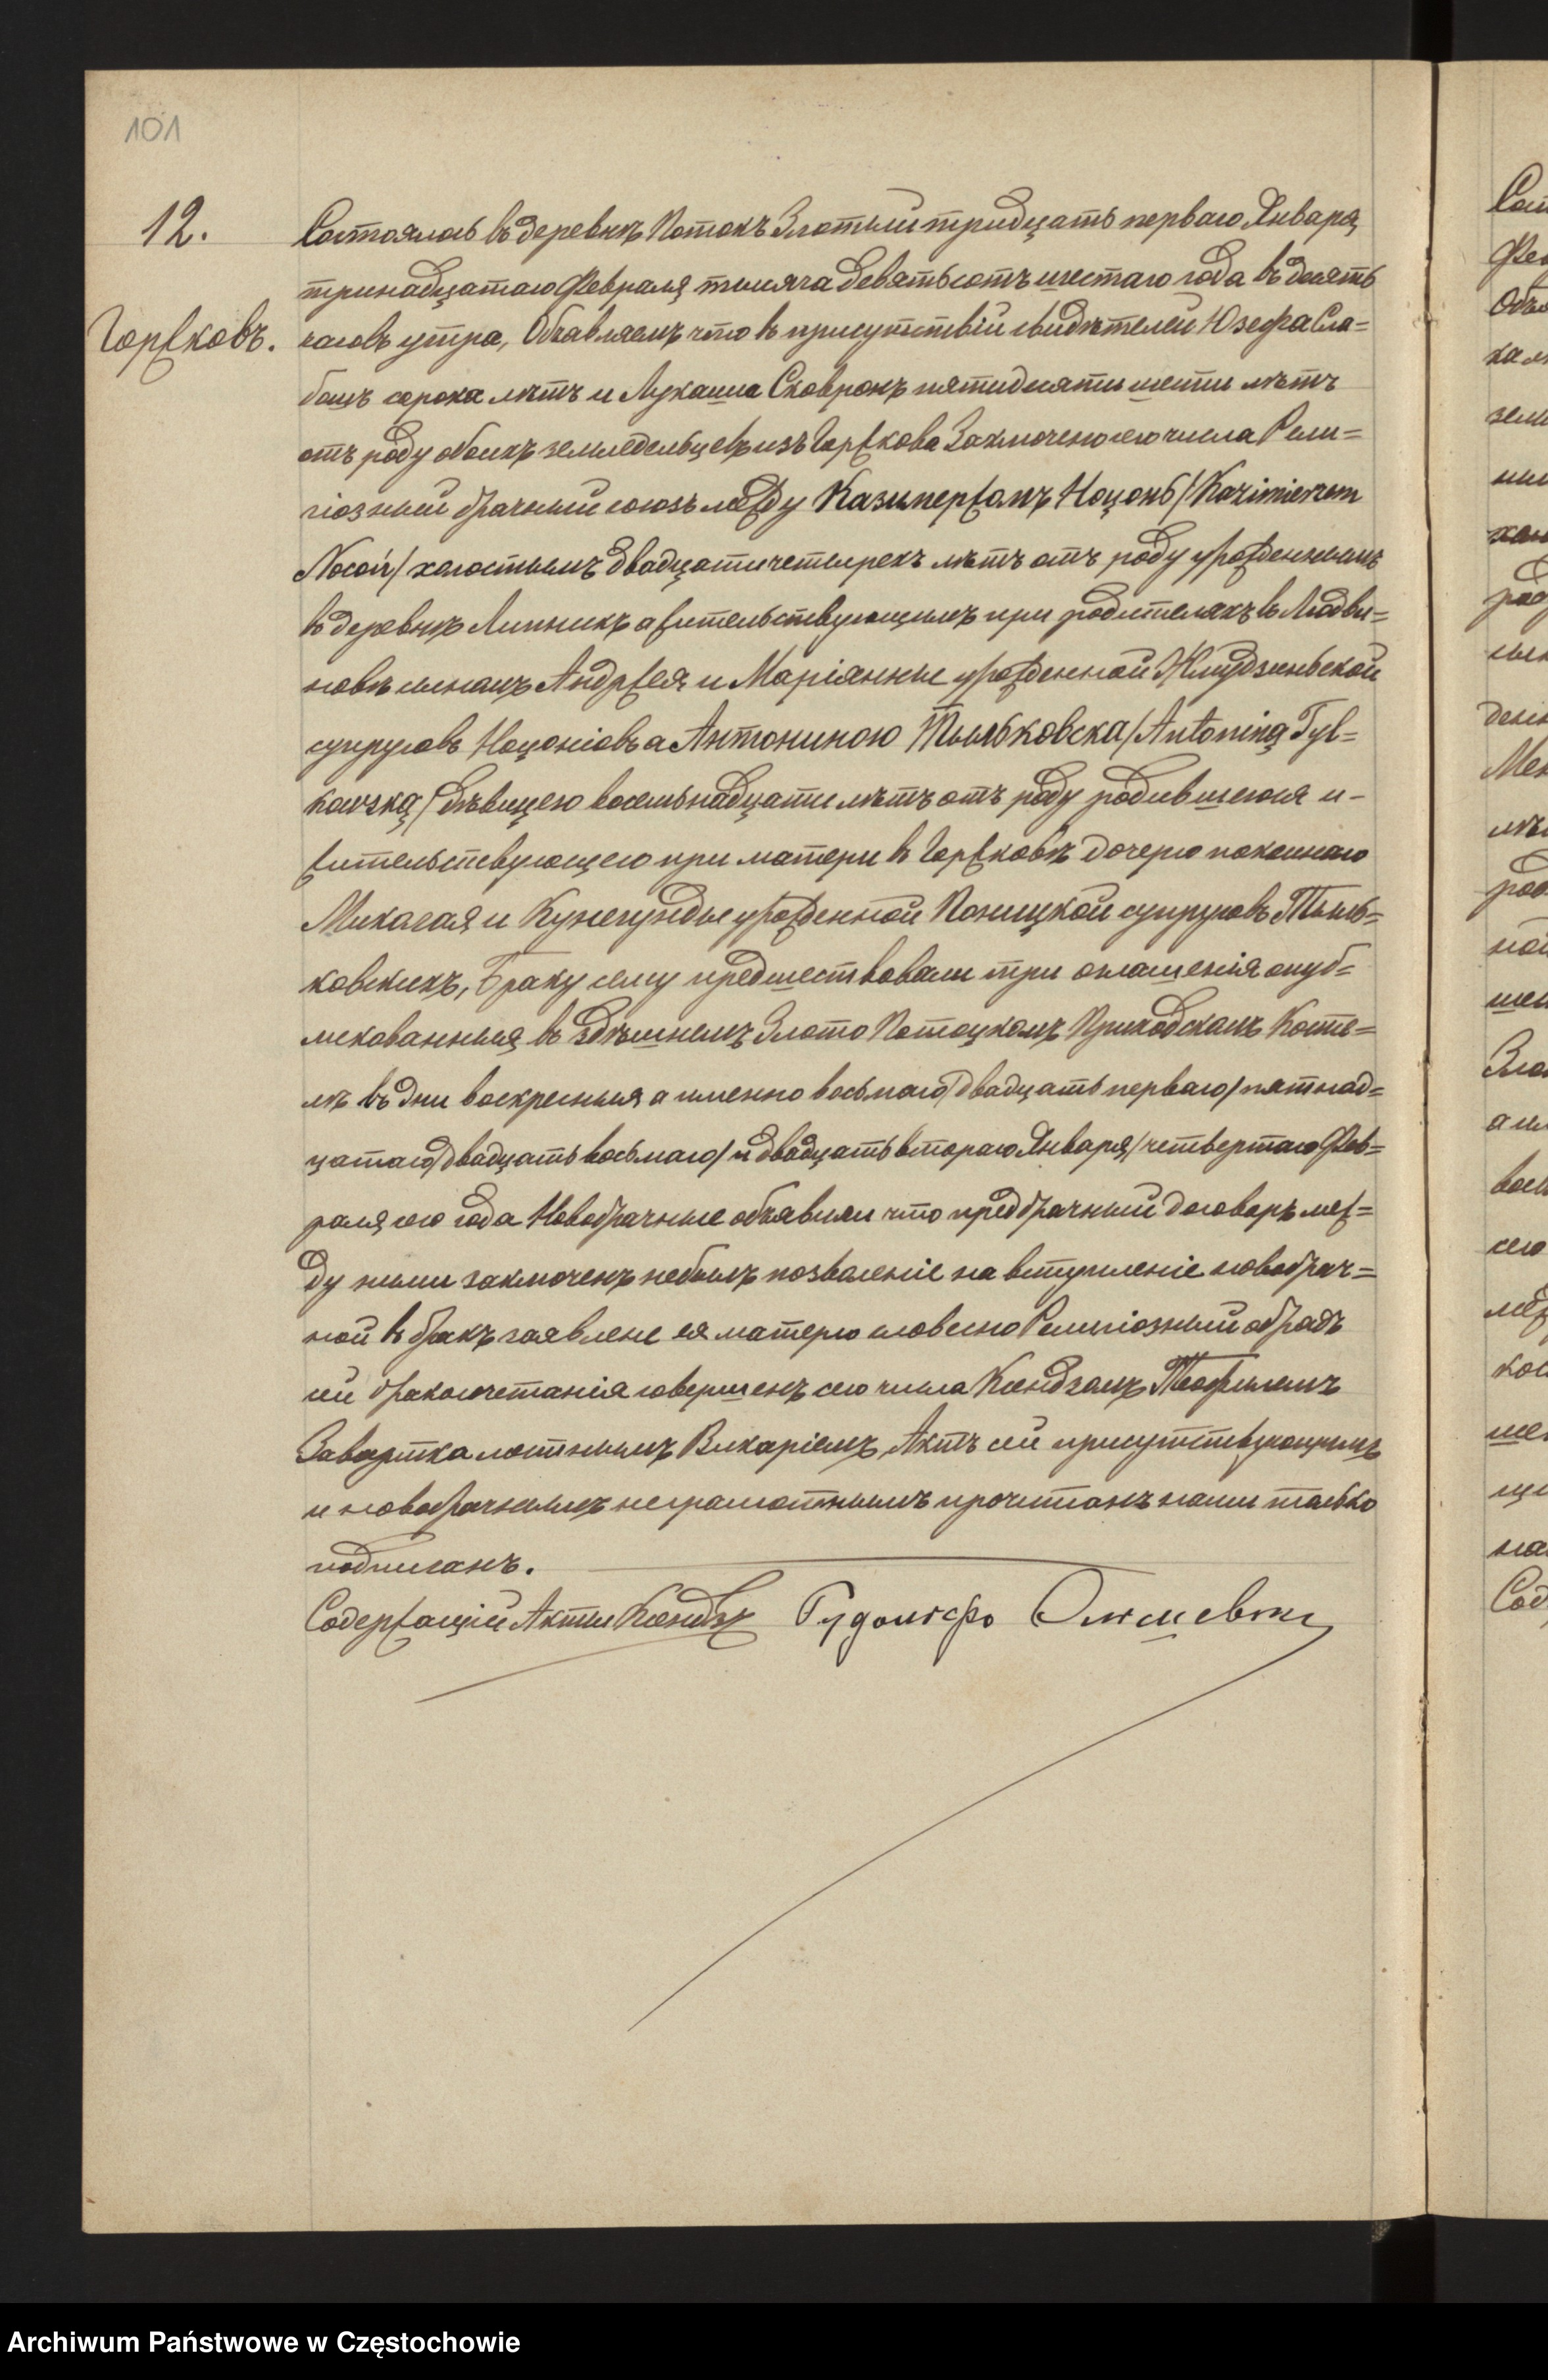 101
12.
Горжковъ.
Состоялось въ деревнѣ Потокъ Злотый тридцать перваго Января
тринадцатаго Февраля тысяча девятьсотъ шестаго года въ десять
часовъ утра, Объявляемъ что въ присутствіи свидѣтелей Юзефа Сла=
бошъ сорока лѣтъ и Лукаша Сковронъ пятидесяти шести лѣтъ
отъ роду обоихъ земледельцевъ изъ Горжкова Заключено сего числа Рели=
гіозный брачный союзъ между Казимержомъ Ноцонь /Kazimierzem
Nocoń/ холостымъ двадцати четырехъ лѣтъ отъ роду урожденнымъ
въ деревнѣ Липникъ а жительствующимъ при родителяхъ въ Людви=
новѣ сыномъ Андржея и Маріянны урожденной Жмудзиньской
супруговъ Ноцоніовъ а Антониною Тыльковска /Antoniną Tyl=
kowską/ дѣвицею восемьнадцати лѣтъ отъ роду родившеюся и-
жительствующею при матери въ Горжковѣ дочерью покойнаго
Миколая и Кунегунды урожденной Поницкой супруговъ Тыль=
ковскихъ, Браку сему предшествовали три оглашенія опуб=
ликованныя въ здѣшнемъ Злото Потоцкомъ Приходскомъ Косте=
лѣ въ дни воскресныя а именно восьмаго /двадцать перваго/ пятнад=
цатаго /двадцать восьмаго/ и двадцать втораго Января /четвертаго Фев=
раля сего года Новобрачные объявили что предбрачный договоръ меж=
ду ними заключенъ небылъ позволеніе на вступленіе новобрач=
ной въ бракъ заявлене ея матерью словесно Религіозный обрядъ
сей бракосочетанія совершенъ сего числа Ксендзомъ Теофилемъ
Завартка мѣстнымъ Викаріемъ, Актъ сей присутствующимъ
и новобрачнымъ неграмотнымъ прочитанъ нами только
подписанъ.
Содержащій Акты Ксендзъ Рудольфъ